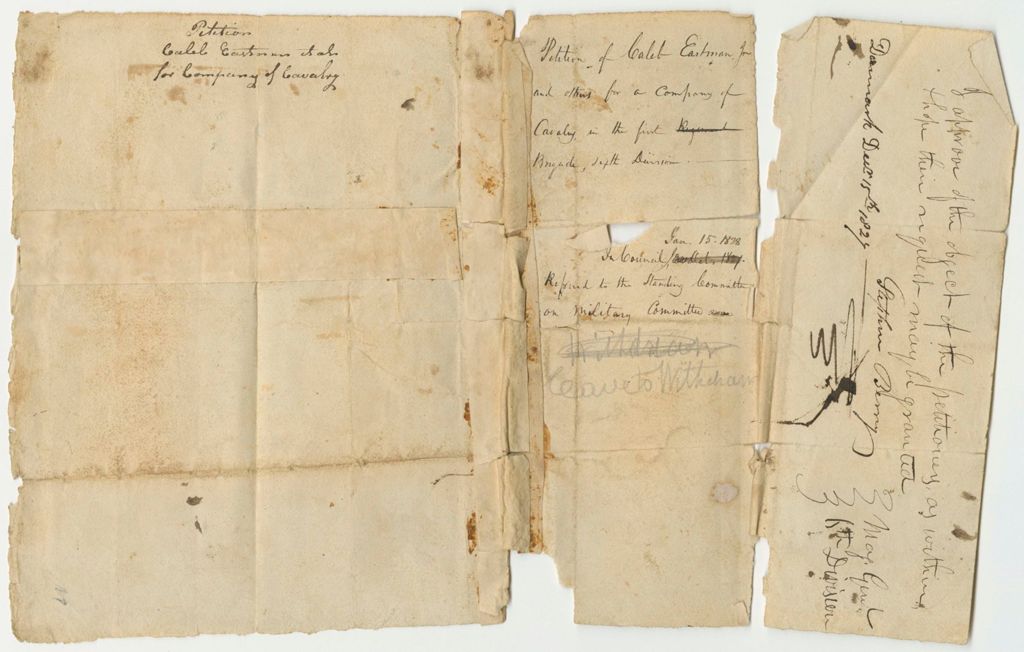 Petition
Caleb Eastman & als
for Company of Cavalry
Petition of Caleb Eastman Jr
and others for a Company of
Cavalry, in the first Regiment
Brigade, sixth Division
Jan. 15. 1828
In Council
Referred to the Standing Committee
on Military Committee
Withdrawn
Leave to Withdraw
I approve of the object of the petitioners, as within,
I hope their request may be granted
Denmark Decr 15th 1827
Berry
Maj. Genl
6th Division